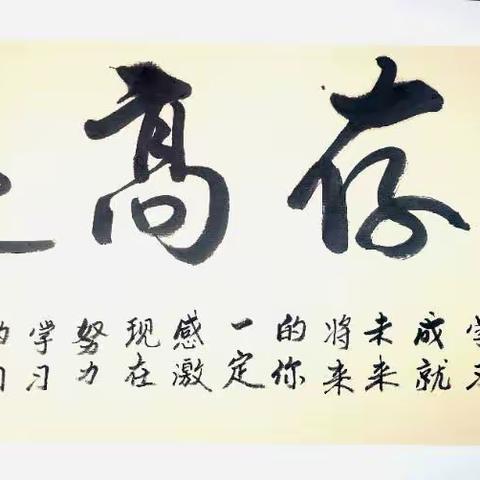 存高
学习
成就
未来
将来
的你
一定
感激
现在
努力
学习